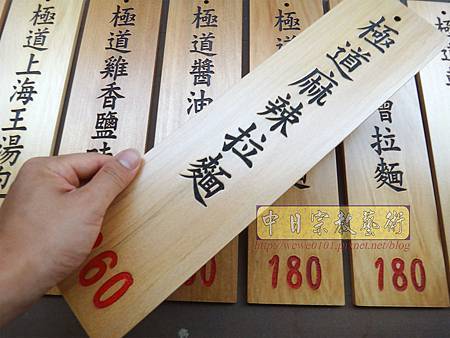 極道上海王湯
極道雞香鹽
極道醬油
極道麻辣拉麵
60
180
噌拉麵
180
中日宗教藝術
http://wewe0101.pixnet.net/blog